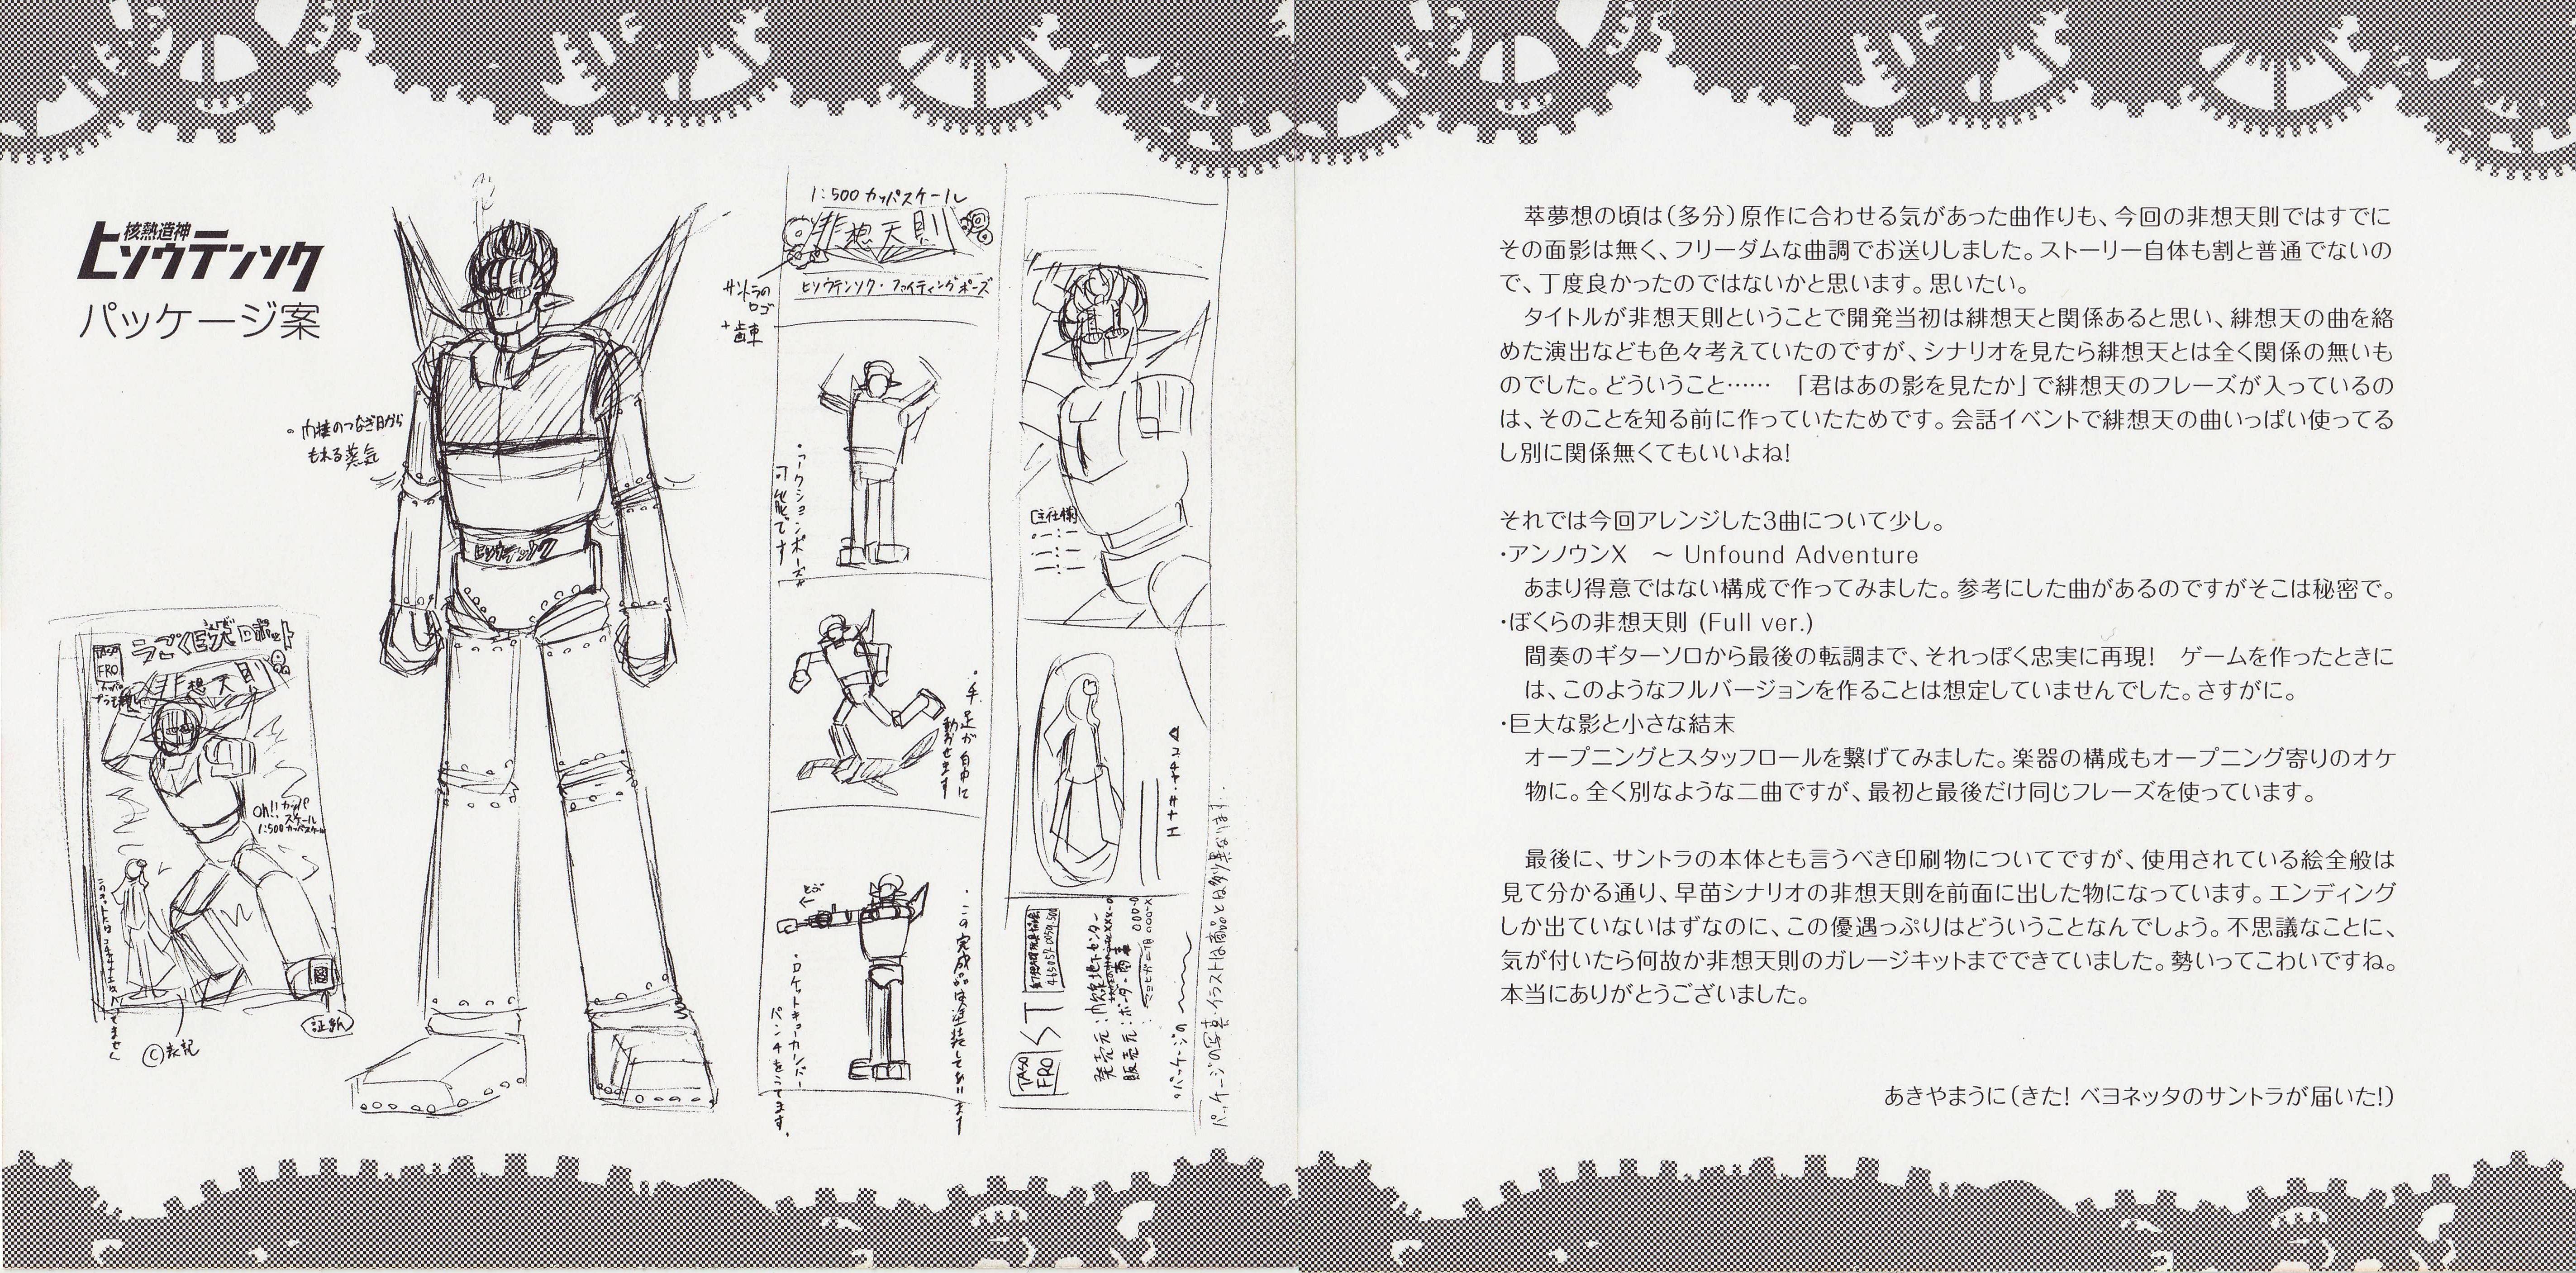 核熱造神
ヒソウテンソク
パッケージ案
。内接のつなぎ目から
もれる蒸気
ヒソウテンソク
うごく巨大ロボット
TASO
FRO
非想天則
Oh!! カッパ
スケール
1:500カッパスケール
証紙
©表記
1:500カッパスケール
非想天則
サントラの
ロゴ
+歯車
ヒソウテンソク・ファイティングポーズ
・アクションポーズが
可能です
・手足が自由に
動かせます
とぶ
・ロケットキューカンバー
パンチをうてます。
・この完成品は塗装してあります
[主仕様]
コチヤ・サナエ
TASO
FRO
ST
発売元:
販売元:
・パッケージの
パッケージの写真・イラストは商品とは多少異なります.
萃夢想の頃は(多分)原作に合わせる気があった曲作りも、今回の非想天則ではすでに
その面影は無く、フリーダムな曲調でお送りしました。ストーリー自体も割と普通でないの
で、丁度良かったのではないかと思います。思いたい。
タイトルが非想天則ということで開発当初は緋想天と関係あると思い、緋想天の曲を絡
めた演出なども色々考えていたのですが、シナリオを見たら緋想天とは全く関係の無いも
のでした。どういうこと…… 「君はあの影を見たか」で緋想天のフレーズが入っているの
は、そのことを知る前に作っていたためです。会話イベントで緋想天の曲いっぱい使ってる
し別に関係無くてもいいよね!
それでは今回アレンジした3曲について少し。
・アンノウンX ～ Unfound Adventure
あまり得意ではない構成で作ってみました。参考にした曲があるのですがそこは秘密で。
・ぼくらの非想天則 (Full ver.)
間奏のギターソロから最後の転調まで、それっぽく忠実に再現! ゲームを作ったときに
は、このようなフルバージョンを作ることは想定していませんでした。さすがに。
・巨大な影と小さな結末
オープニングとスタッフロールを繋げてみました。楽器の構成もオープニング寄りのオケ
物に。全く別なような二曲ですが、最初と最後だけ同じフレーズを使っています。
最後に、サントラの本体とも言うべき印刷物についてですが、使用されている絵全般は
見て分かる通り、早苗シナリオの非想天則を前面に出した物になっています。エンディング
しか出ていないはずなのに、この優遇っぷりはどういうことなんでしょう。不思議なことに、
気が付いたら何故か非想天則のガレージキットまでできていました。勢いってこわいですね。
本当にありがとうございました。
あきやまうに(きた! ベヨネッタのサントラが届いた!)